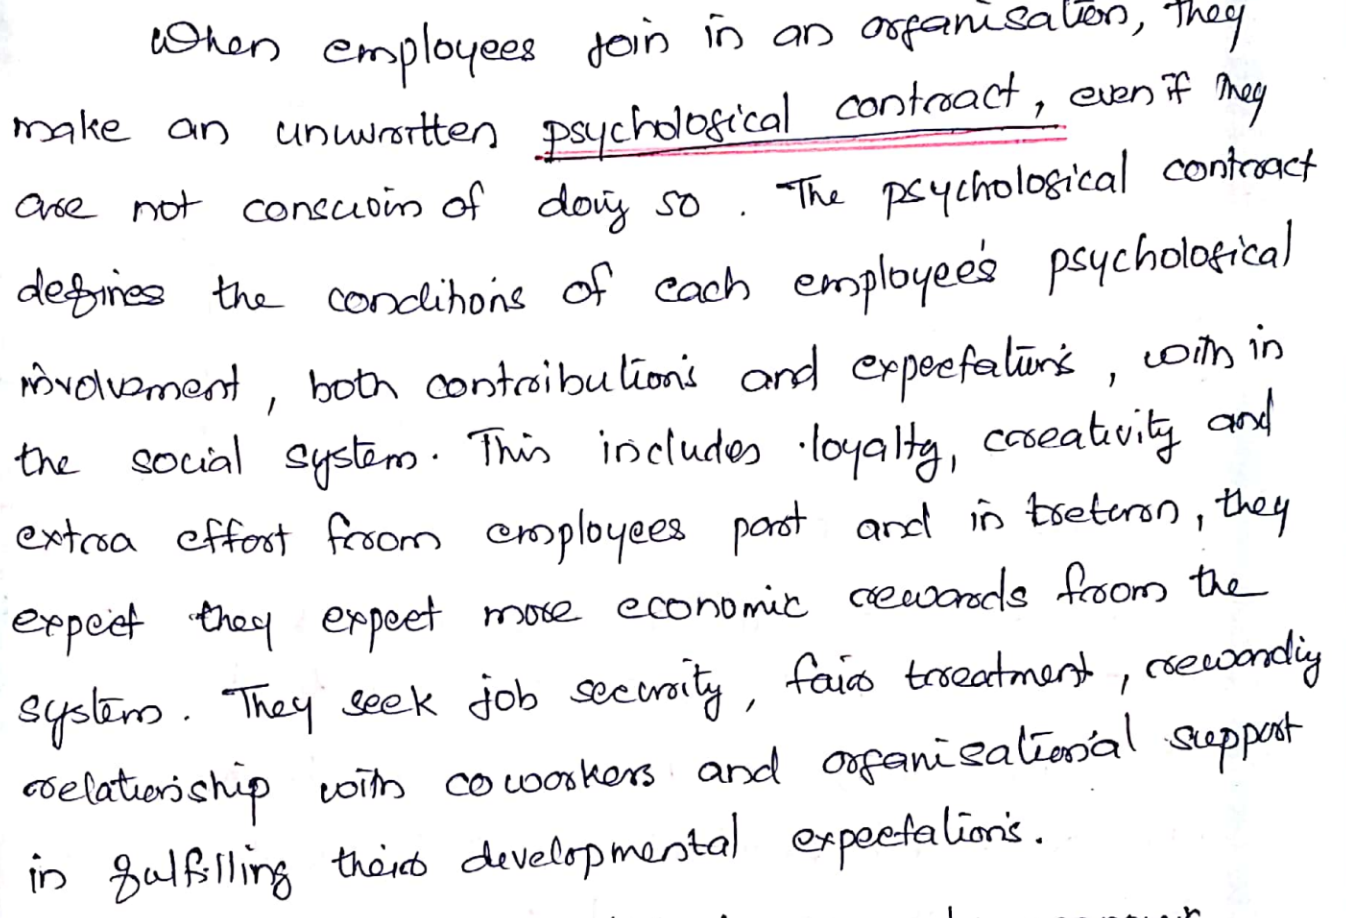 When employees join in an organisation, they
make an unwritten psychological contract, even if they
are not conscious of doing so. The psychological contract
defines the conditions of each employee's psychological
involvement, both contributions and expectations, with in
the social system. This includes loyalty, creativity and
extra effort from employees part and in return, they
expect they expect more economic rewards from the
system. They seek job security, fair treatment, rewarding
relationship with coworkers and organisational support
in fulfilling their developmental expectations.